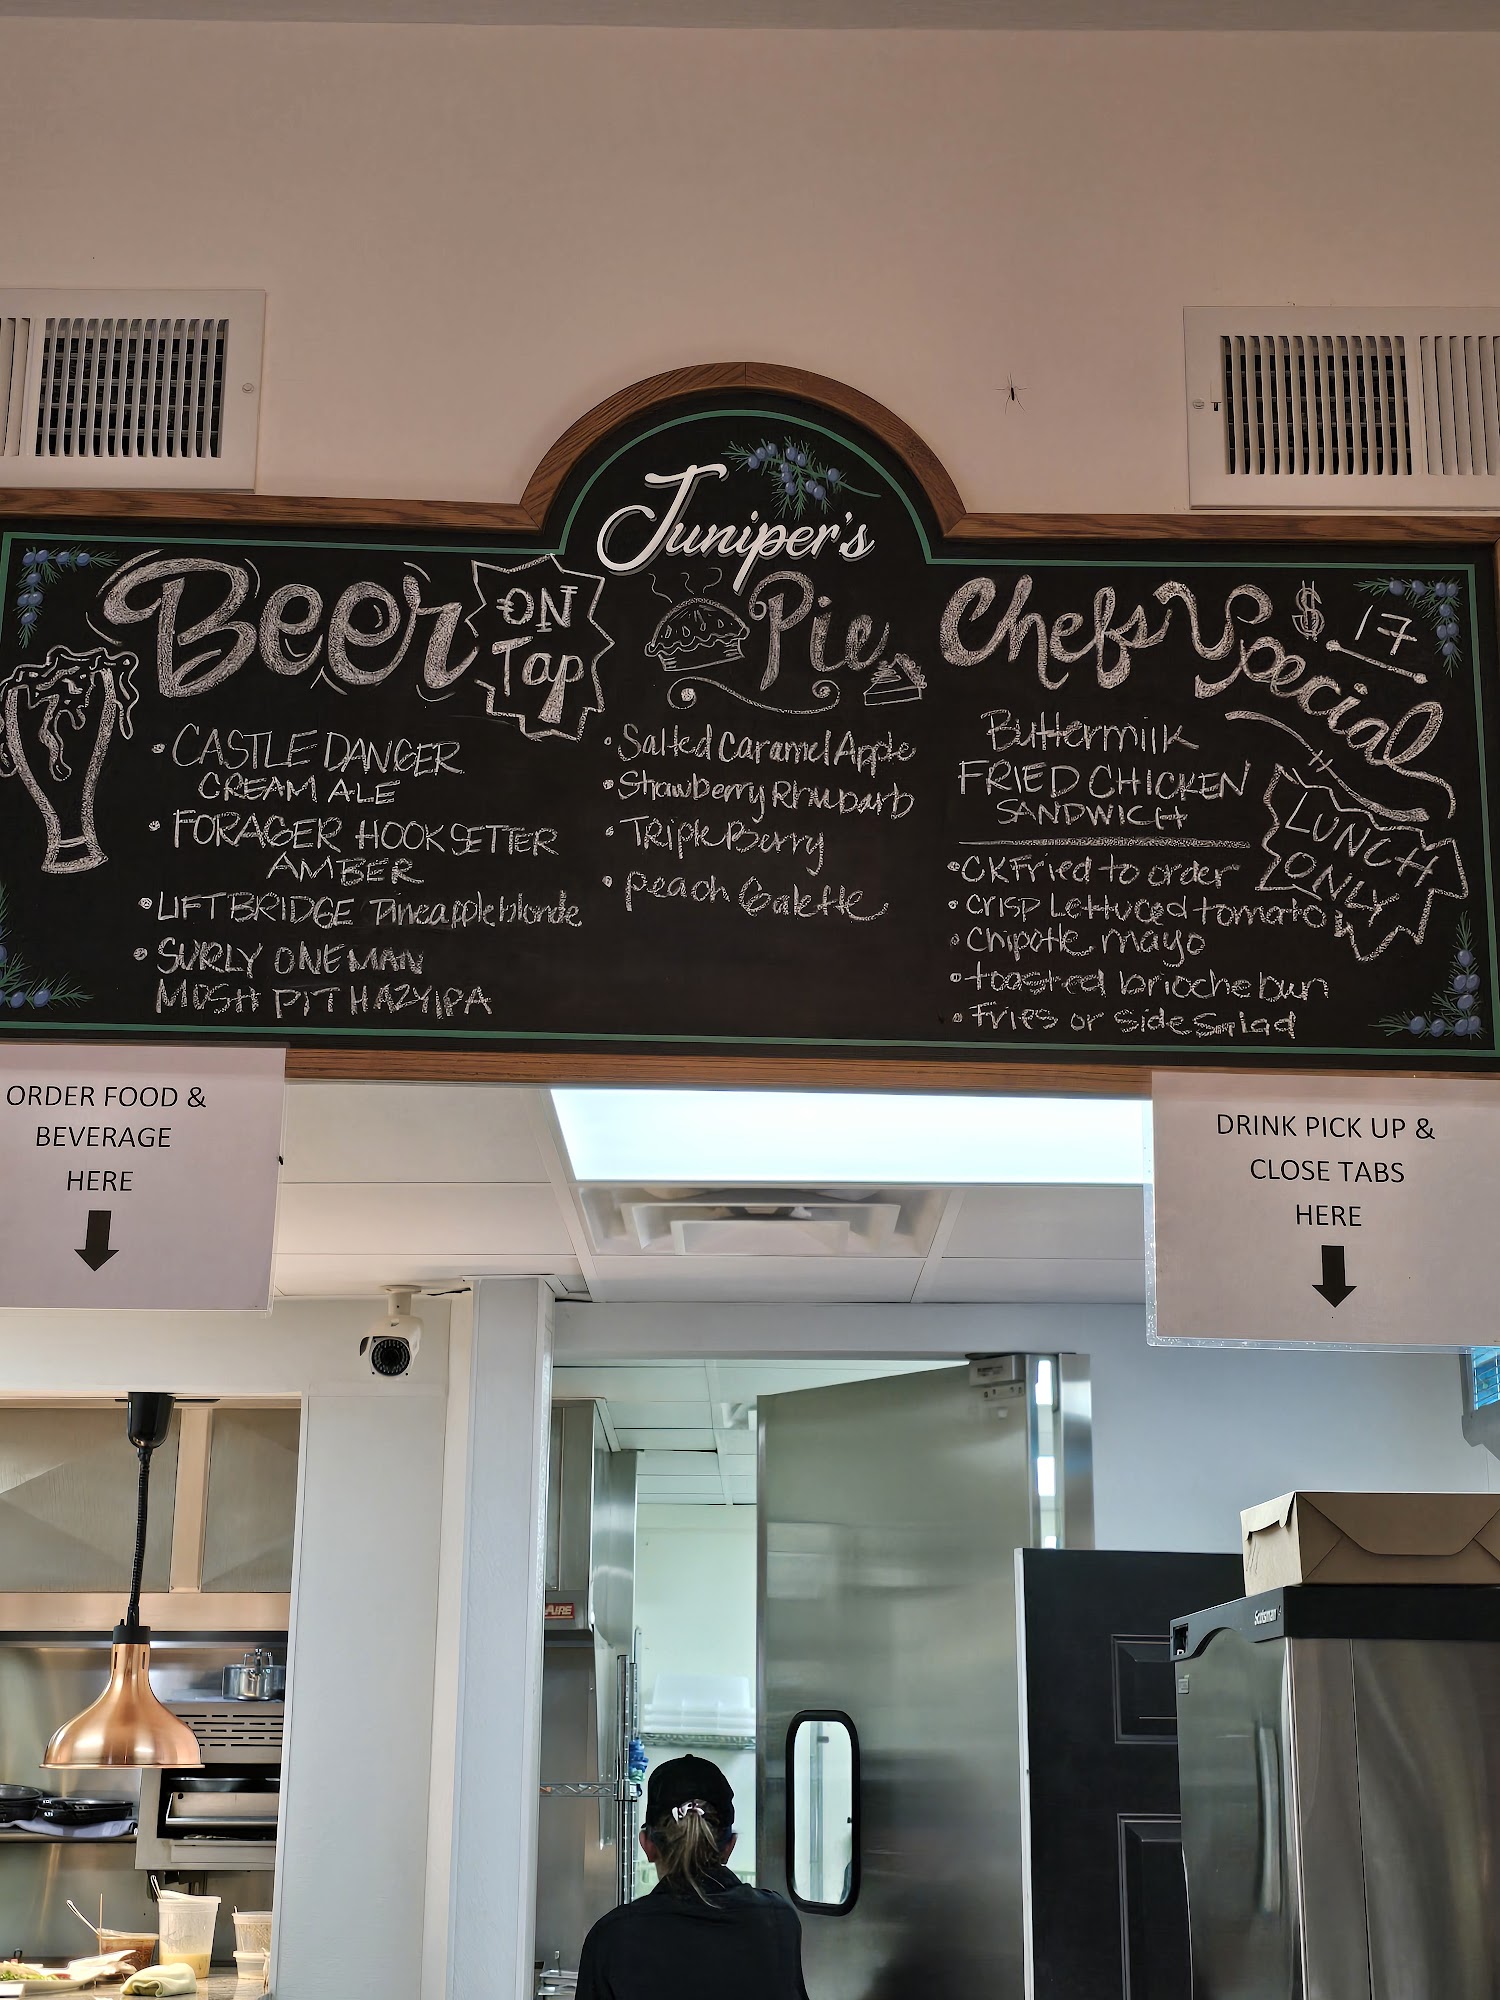 Juniper's
Beer
ON
Tap
• CASTLE DANGER
CREAM ALE
• FORAGER HOOKSETTER
AMBER
• LIFT BRIDGE Pineapple blonde
• SURLY ONE MAN
MOSH PIT HAZY IPA
Pie
• Salted Caramel Apple
• Strawberry Rhubarb
• Triple Berry
• peach Galette
Chefs Special $17
Buttermilk
FRIED CHICKEN
SANDWICH
LUNCH
ONLY
• CK Fried to order
• crisp Lettuce d tomato
• Chipotle mayo
• toasted brioche bun
• Fries or side Salad
ORDER FOOD &
BEVERAGE
HERE
DRINK PICK UP &
CLOSE TABS
HERE
AIRE
Scotsman